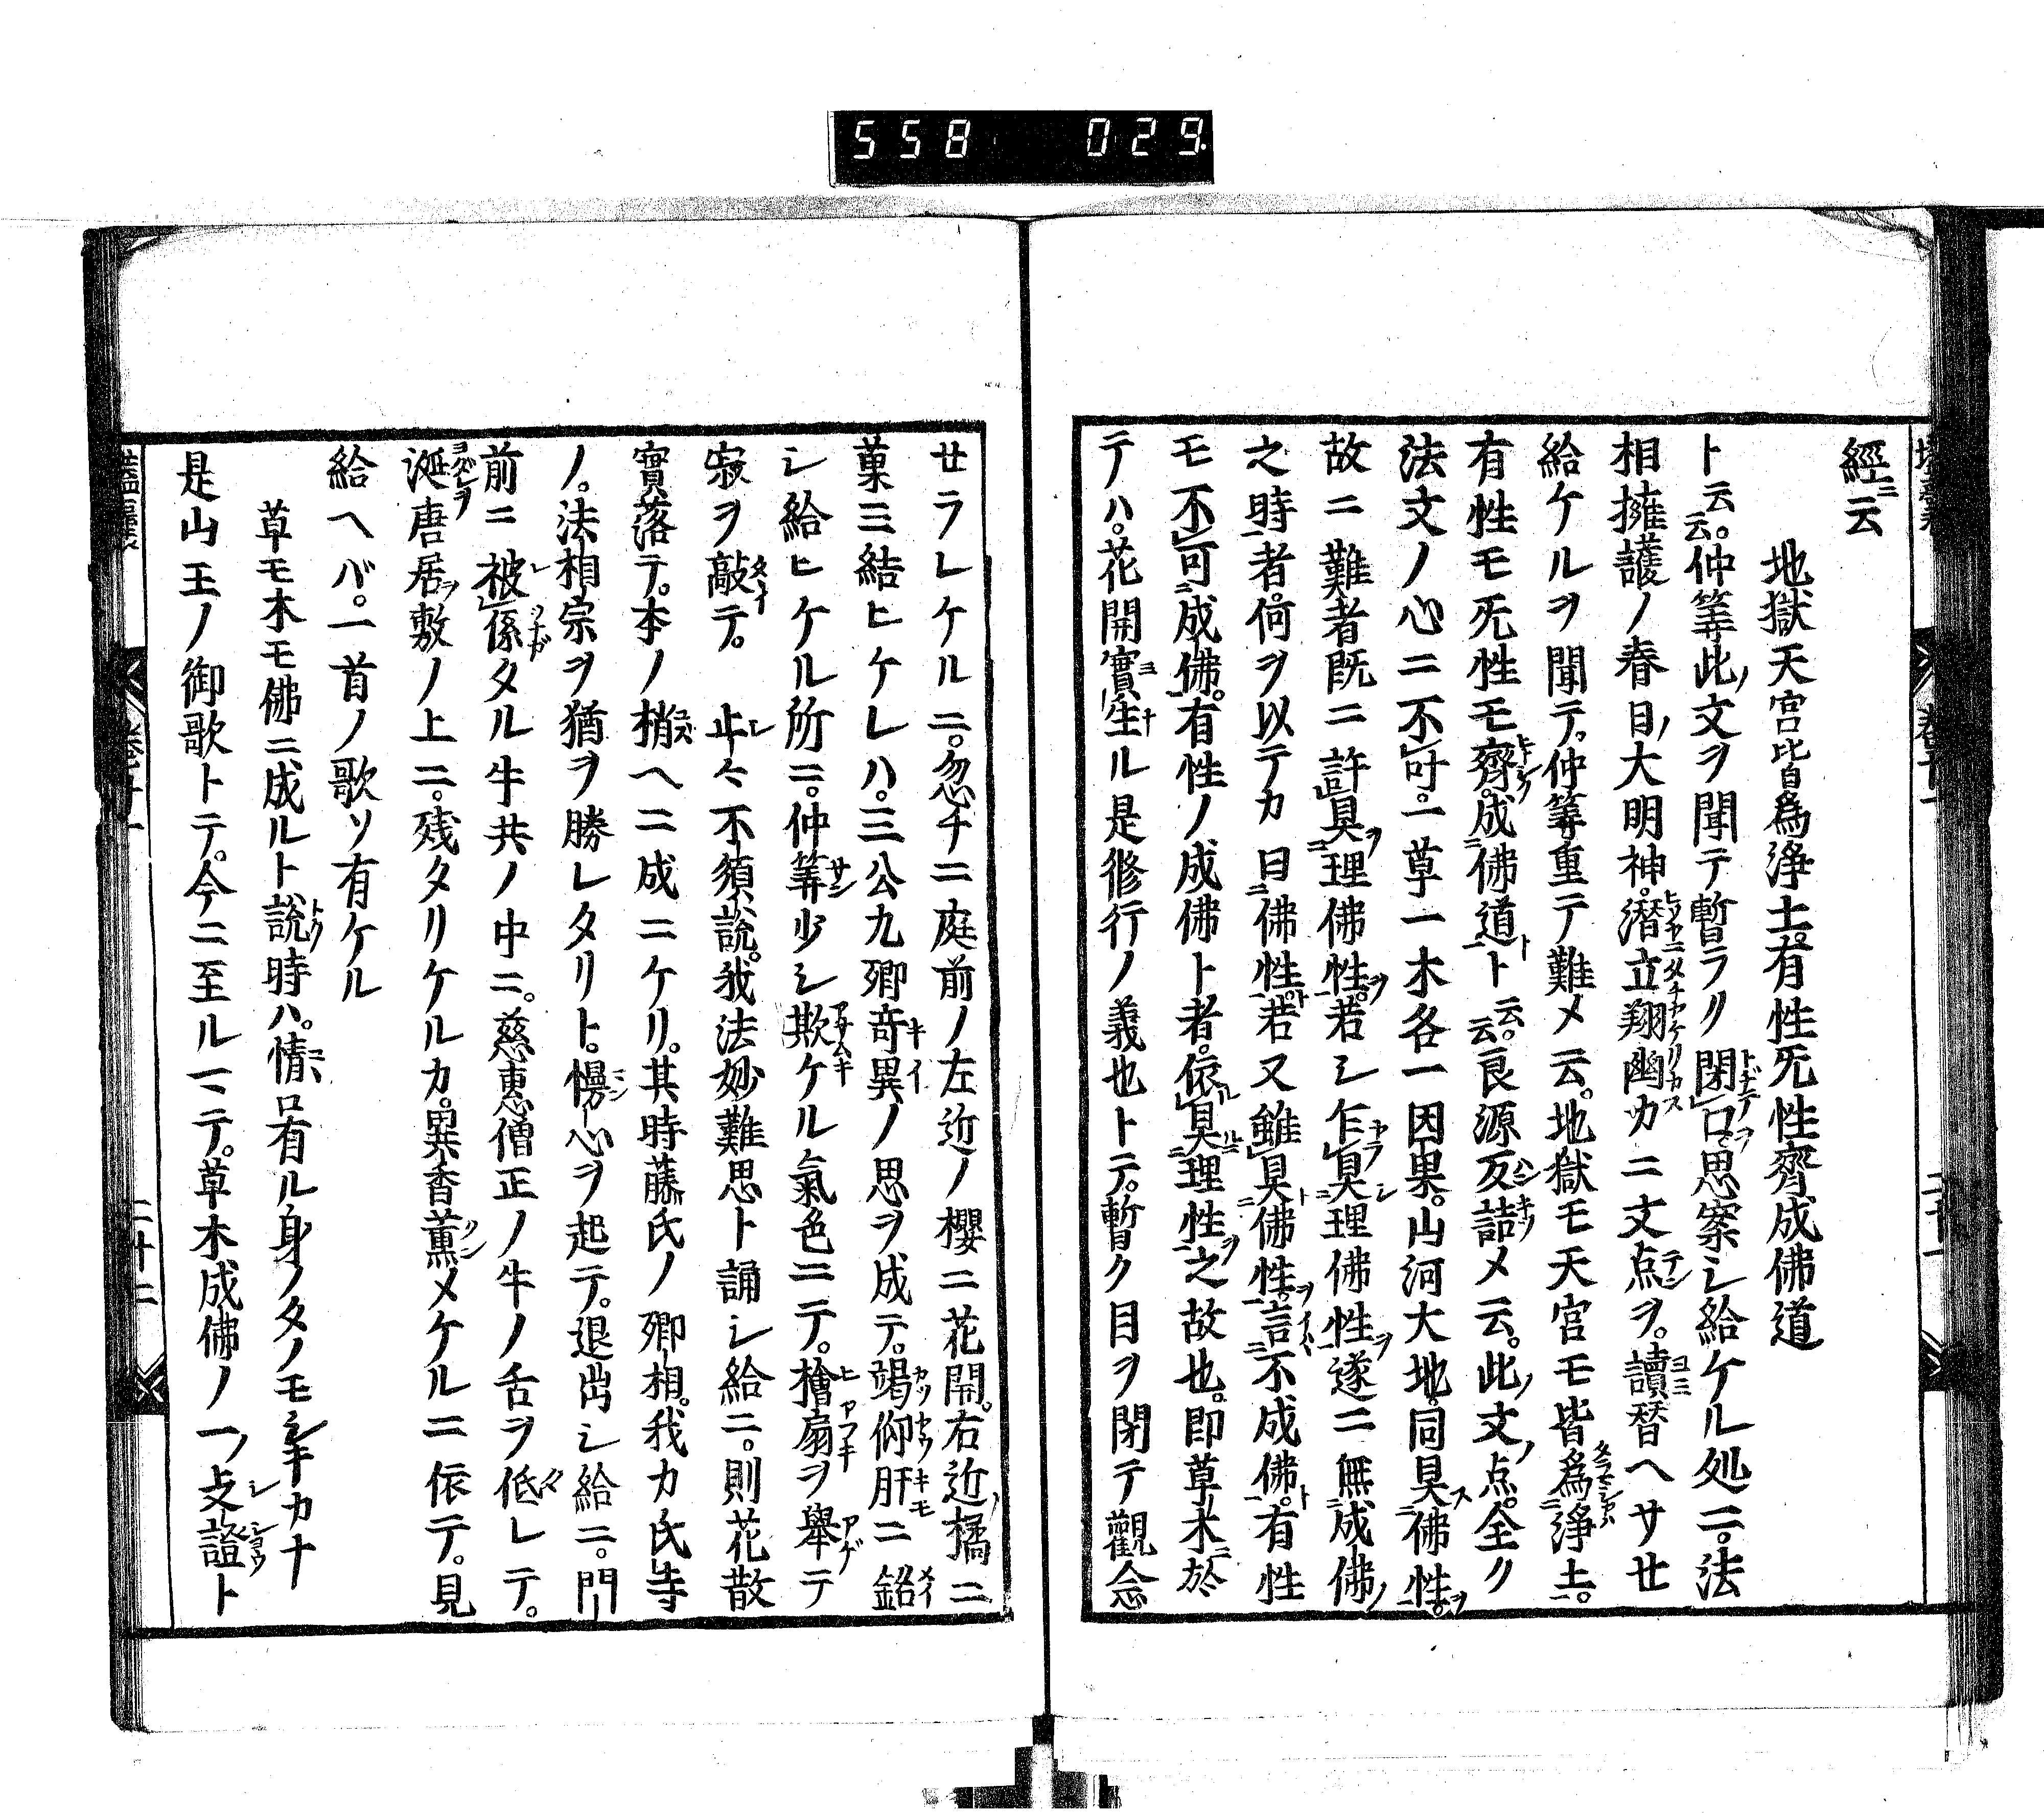 558 029
經ニ云
地獄天宮皆爲浄土。有性旡性齊成佛道
ト云云。仲等此ノ文ヲ聞テ暫ラク閉口思案シ給ケル処ニ。法
相擁護ノ春日ノ大明神。潜立翔幽カニ文点ヲ。讀替ヘサせ
給ケルヲ聞テ。仲等重テ難メ云。地獄モ天宮モ皆爲浄土。
有性モ旡性モ齊。成佛道ト云云。良源反詰メ云。此ノ文ノ点。全ク
法文ノ心ニ不可。一草一木各一因果。山河大地。同具佛性。
故ニ難者既ニ許具理佛性。若シ乍具理佛性遂ニ無成佛
之時者。何ヲ以テカ曰佛性。若又雖具佛性。言不成佛。有性
モ不可成佛。有性ノ成佛ト者。依具理性之故也。即草木於
テハ。花開實生ル是修行ノ義也トテ。暫ク目ヲ閉テ觀念
せラレケルニ。忽チニ庭前ノ左近ノ櫻ニ花開。右近ノ橘ニ
菓ミ結ヒケレハ。三公九卿竒異ノ思ヲ成テ。竭仰肝ニ銘
シ給ヒケル所ニ。仲筭少シ欺ケル氣色ニテ。檜扇ヲ舉テ
寂ヲ敲テ。止々不須説。我法妙難思ト誦シ給ニ。則花散
實落テ。本ノ梢ヘニ成ニケリ。其時藤氏ノ卿相。我カ氏寺
ノ。法相宗ヲ猶ヲ勝レタリト。慢心ヲ起テ。退出シ給ニ。門
前ニ被係タル牛共ノ中ニ。慈惠僧正ノ牛ノ舌ヲ低レテ。
涎唐居敷ノ上ニ。残タリケルカ。異香薫メケルニ依テ。見
給ヘバ。一首ノ歌ソ有ケル
草モ木モ佛ニ成ルト説時ハ。情ロ有ル身ノタノモシキカナ
是山王ノ御歌トテ。今ニ至ルマテ。草木成佛ノ一ノ支證ト
二十二